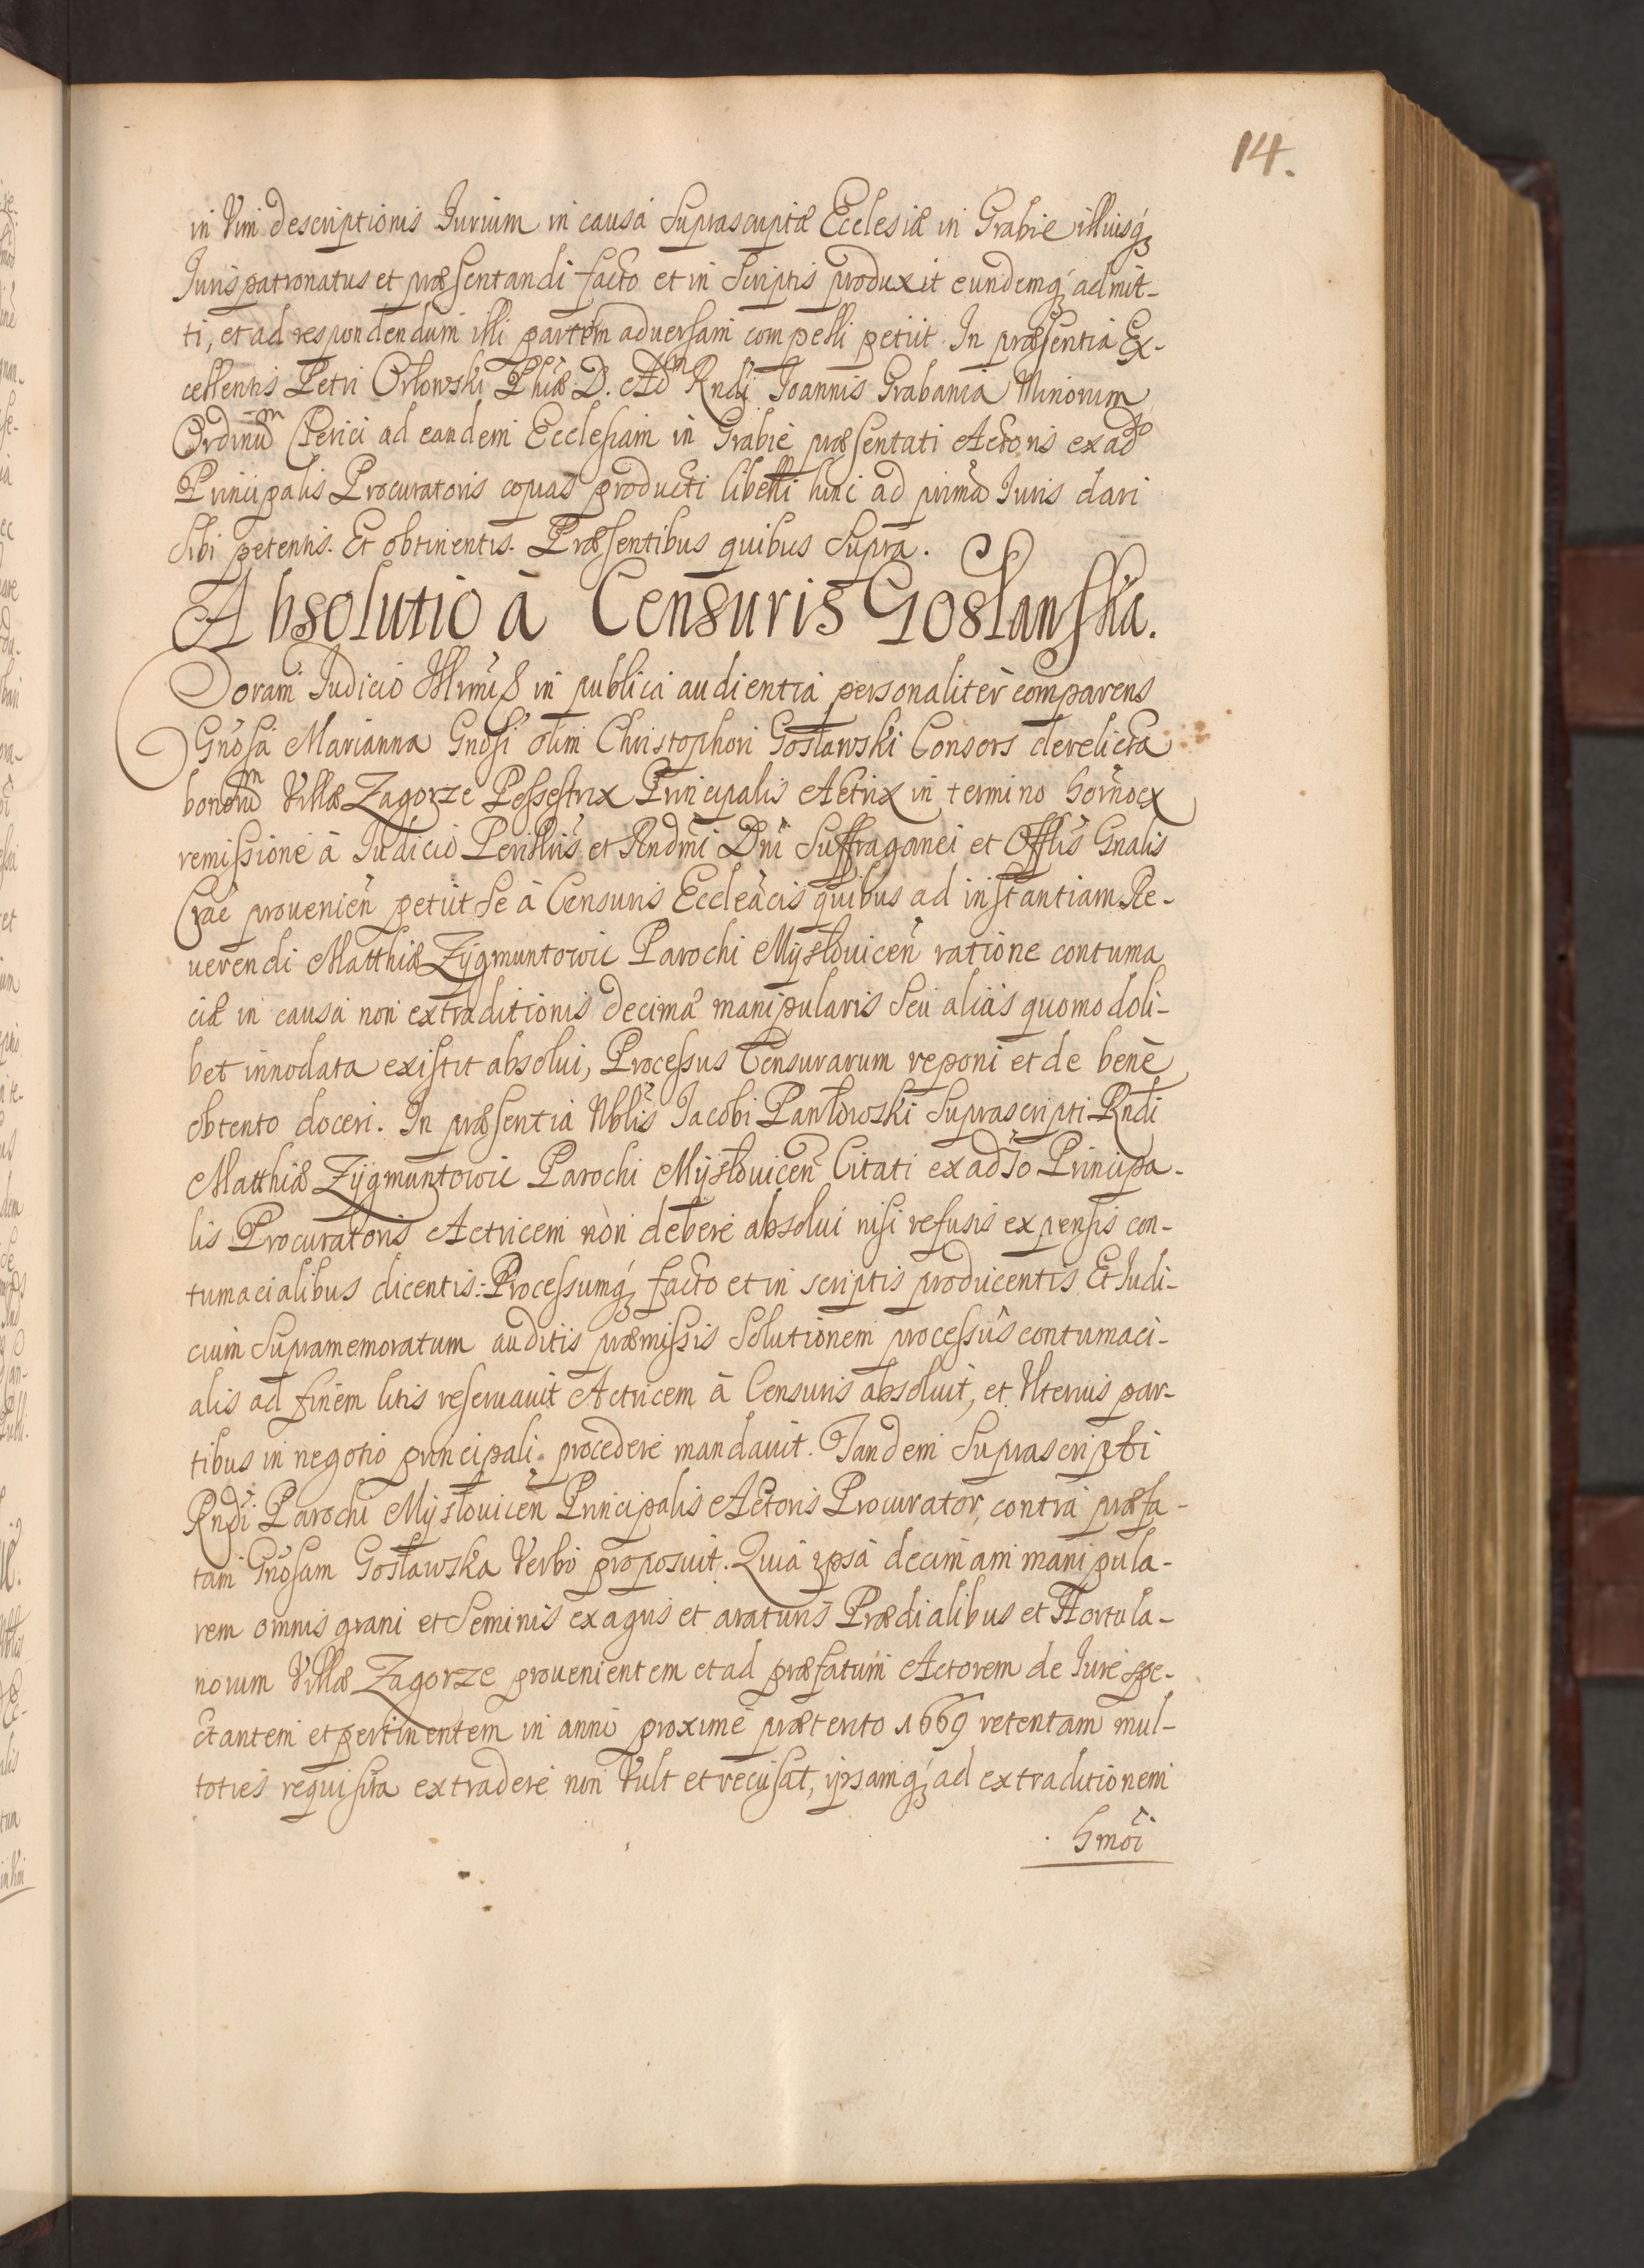 14.
in Vim descriptionis Iurium in causa Suprascriptæ Ecclesiæ in Grabie illiusq́
Iurispatronatus et præsentandi facto et in Scriptis produxit eundemq́ admit-
ti, et ad respondendum illi partem aduersam compelli petiit. In præsentia Ex-
cellentis Petri Orłowski Phiæ D. Adm Rndi Joannis Grabania Minorum
Ordinũm Clerici ad eandem Ecclesiam in Grabie præsentati Actoris ex adso
Principalis Procuratoris copias producti libelli hinc ad primã Iuris dari
Sibi petentis. Et obtinentis. Præsentibus quibus Supra.
Absolutio à Censuris Gosławska.
Coram Iudicio Illrmiß in publica audientia personaliter comparens
Gnosa Marianna Gnosi olim Christophori Gosławski Consors derelicta
bonorũm Villæ Zagorze Possestrix Principalis Actrix in termino hornoex
remissione à Iudicio Perillris et Rndmi Dni Suffraganei et Offlis Gnalis
Crae prouenien̄ petiit Se à Censuris Eccleacis quibus ad instantiam Re-
uerendi Matthiæ Zygmuntowic Parochi Mysłouicen̄ ratione contuma
ciæ in causa non extraditionis decimæ manipularis Seu alias quomodoli-
bet innodata existit absolui, Processus Censurarum reponi et de bene
obtento doceri. In præsentia Nblis Jacobi Pawłowski Suprascripti Rndi
Matthiæ Zygmuntowic Parochi Mysłouicen̄ Citati ex adso Principa-
lis Procuratoris Actricem non debere absolui nisi refusis expensis con-
tumacialibus dicentis: Processumq́ facto et in scriptis producentis Et Iudi-
cium Supramemoratum auditis præmissis Solutionem processus contumaci-
alis ad finem litis reseruauit Actricem à Censuris absoluit, et Vlterius par-
tibus in negotio principali procedere mandauit. Tandem Suprascripti
Rndi Parochi Mysłouicen̄ Principalis Actoris Procurator, contra præfa-
tam Gnosam Gosławska Verbo proposuit. Quia ipsa decimam manipula-
rem omnis grani et Seminis ex agris et araturis Prædialibus et Hortula-
norum Villæ Zagorze prouenientem et ad præfatum Actorem de Iure spe-
ctantem et pertinentem in anno proxime præterito 1669 retentam mul-
toties requisita extradere non Vult et recusat, ipsamq́ ad extraditionem
hmoi